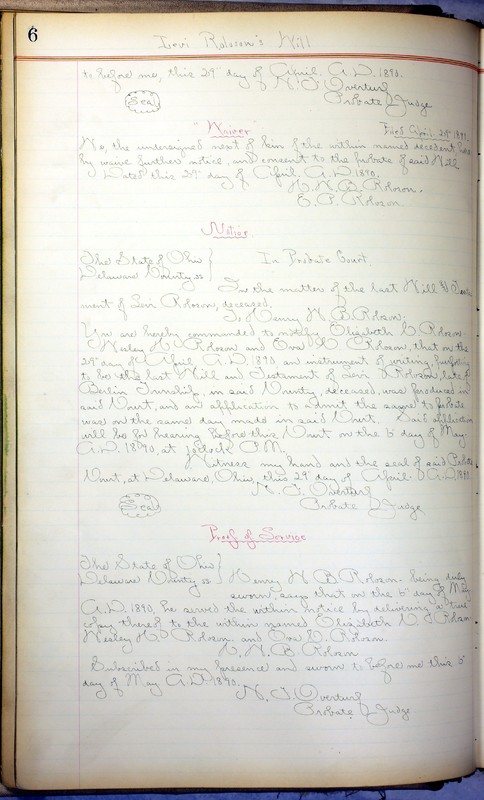 6
Levi Roloson's Will
to before me, this 29" day of April. A.D. 1890.
N. F. Overturf
Seal
Probate Judge
"Waiver"
Filed April 29" 1890.
We, the undersigned next of kin of the within named decedent here
by waive further notice, and consent to the probate of said Will
Dated this 29" day of April. A.D. 1890.
H. W. B. Roloson.
E. P. Roloson
Notice
The State of Ohio
Delaware County ss
In Probate Court.
In the matter of the last Will & Testa-
ment of Levi Roloson, deceased.
To Henry W. B. Roloson:
You are hereby commanded to notify Elizabeth Roloson
Wesley H. Roloson and Ova Roloson, that on the
29" day of April A.D. 1890 an instrument of writing purporting
to be the last Will and Testament of Levi Roloson late of
Berlin Township, in said County, deceased, was produced in
said Court, and an application to admit the same to probate
was on the same day made in said Court. Said application
will be for hearing before this Court on the 6" day of May
A.D. 1890, at 1 o'clock P.M.
Witness my hand and the seal of said Probate
Court, at Delaware, Ohio, this 29" day of April. A.D. 1890.
N. F. Overturf
Seal
Probate Judge
Proof of Service
The State of Ohio
Delaware County ss
Henry W. B. Roloson being duly
sworn, says that on the 6" day of May
A.D. 1890, he served the within notice by delivering a "true"
copy thereof to the within named Elizabeth Roloson
Wesley H. Roloson and Ova Roloson.
H. W. B. Roloson
Subscribed in my presence and sworn to before me this 6"
day of May A.D. 1890.
N. F. Overturf
Probate Judge.